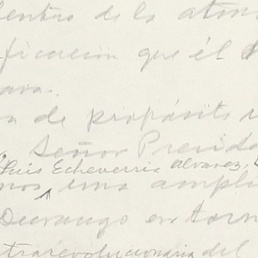 dentro de la atmó
ficación que él
ava.
a de propósito
Señor Presid
Luis Echeverría Alvarez,
nos una ampli
Durango en torn
trarevolucionaria del